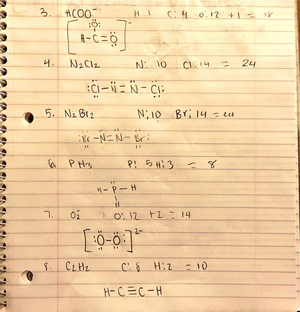 3. HCOO⁻ H: 1 C: 4 O: 12 +1 = 18
[:Ö:
H-C=Ö]⁻
4. N2Cl2 N: 10 Cl: 14 = 24
:Cl-N=N-Cl:
5. N2Br2 N: 10 Br: 14 = 24
:Br-N=N-Br:
6. PH3 P: 5 H: 3 = 8
H-P-H
H
7. O2²⁻ O: 12 +2 = 14
[:O-O:]²⁻
8. C2H2 C: 8 H: 2 = 10
H-C≡C-H